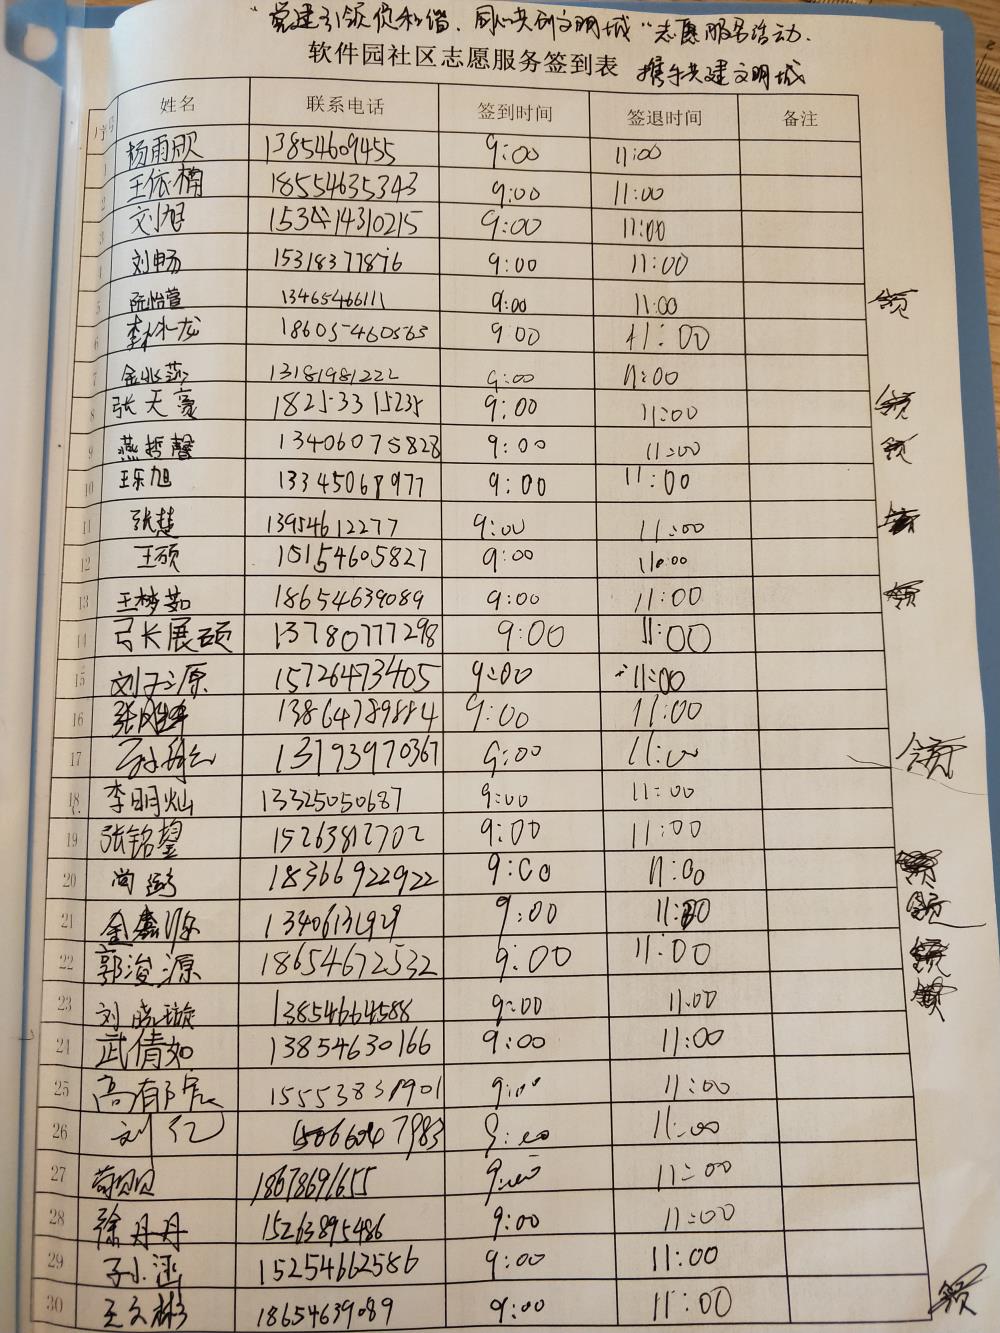 "党建引领促和谐、同心共创文明城"志愿服务活动.
软件园社区志愿服务签到表 携手共建文明城
序号 姓名 联系电话 签到时间 签退时间 备注
1 杨雨欣 13854609455 9:00 11:00
2 王依楠 18554635343 9:00 11:00
3 刘旭 15344310215 9:00 11:00
4 刘畅 15318377876 9:00 11:00
5 阮怡萱 13465466111 9:00 11:00 领
6 李 龙 18605460563 9:00 11:00
7 金 莎 13181981222 9:00 11:00
8 张天豪 18253315235 9:00 11:00 领
9 燕哲馨 13406075828 9:00 11:00 领
10 王乐旭 13345068977 9:00 11:00
11 张楚 13954612277 9:00 11:00
12 王硕 15154605827 9:00 11:00
13 王梦茹 18654639089 9:00 11:00 领
14 张展硕 13780777298 9:00 11:00
15 刘子源 15726473405 9:00 11:00
16 张 13864789884 9:00 11:00
17 孙 13793970367 9:00 11:00 领
18 李明灿 13325050687 9:00 11:00
19 张铭鋆 15263812702 9:00 11:00
20 尚 18366922922 9:00 11:00
21 金鑫 13406131929 9:00 11:00
22 郭浚源 18654672532 9:00 11:00
23 刘晓璇 13854664588 9:00 11:00
24 武倩如 13854630166 9:00 11:00
25 高有 15553831901 9:00 11:00
26 刘红 15066047983 9:00 11:00
27 苟贝贝 18678691655 9:00 11:00
28 徐丹丹 15263895486 9:00 11:00
29 子小涵 15254662586 9:00 11:00
30 王文彬 18654639089 9:00 11:00 领